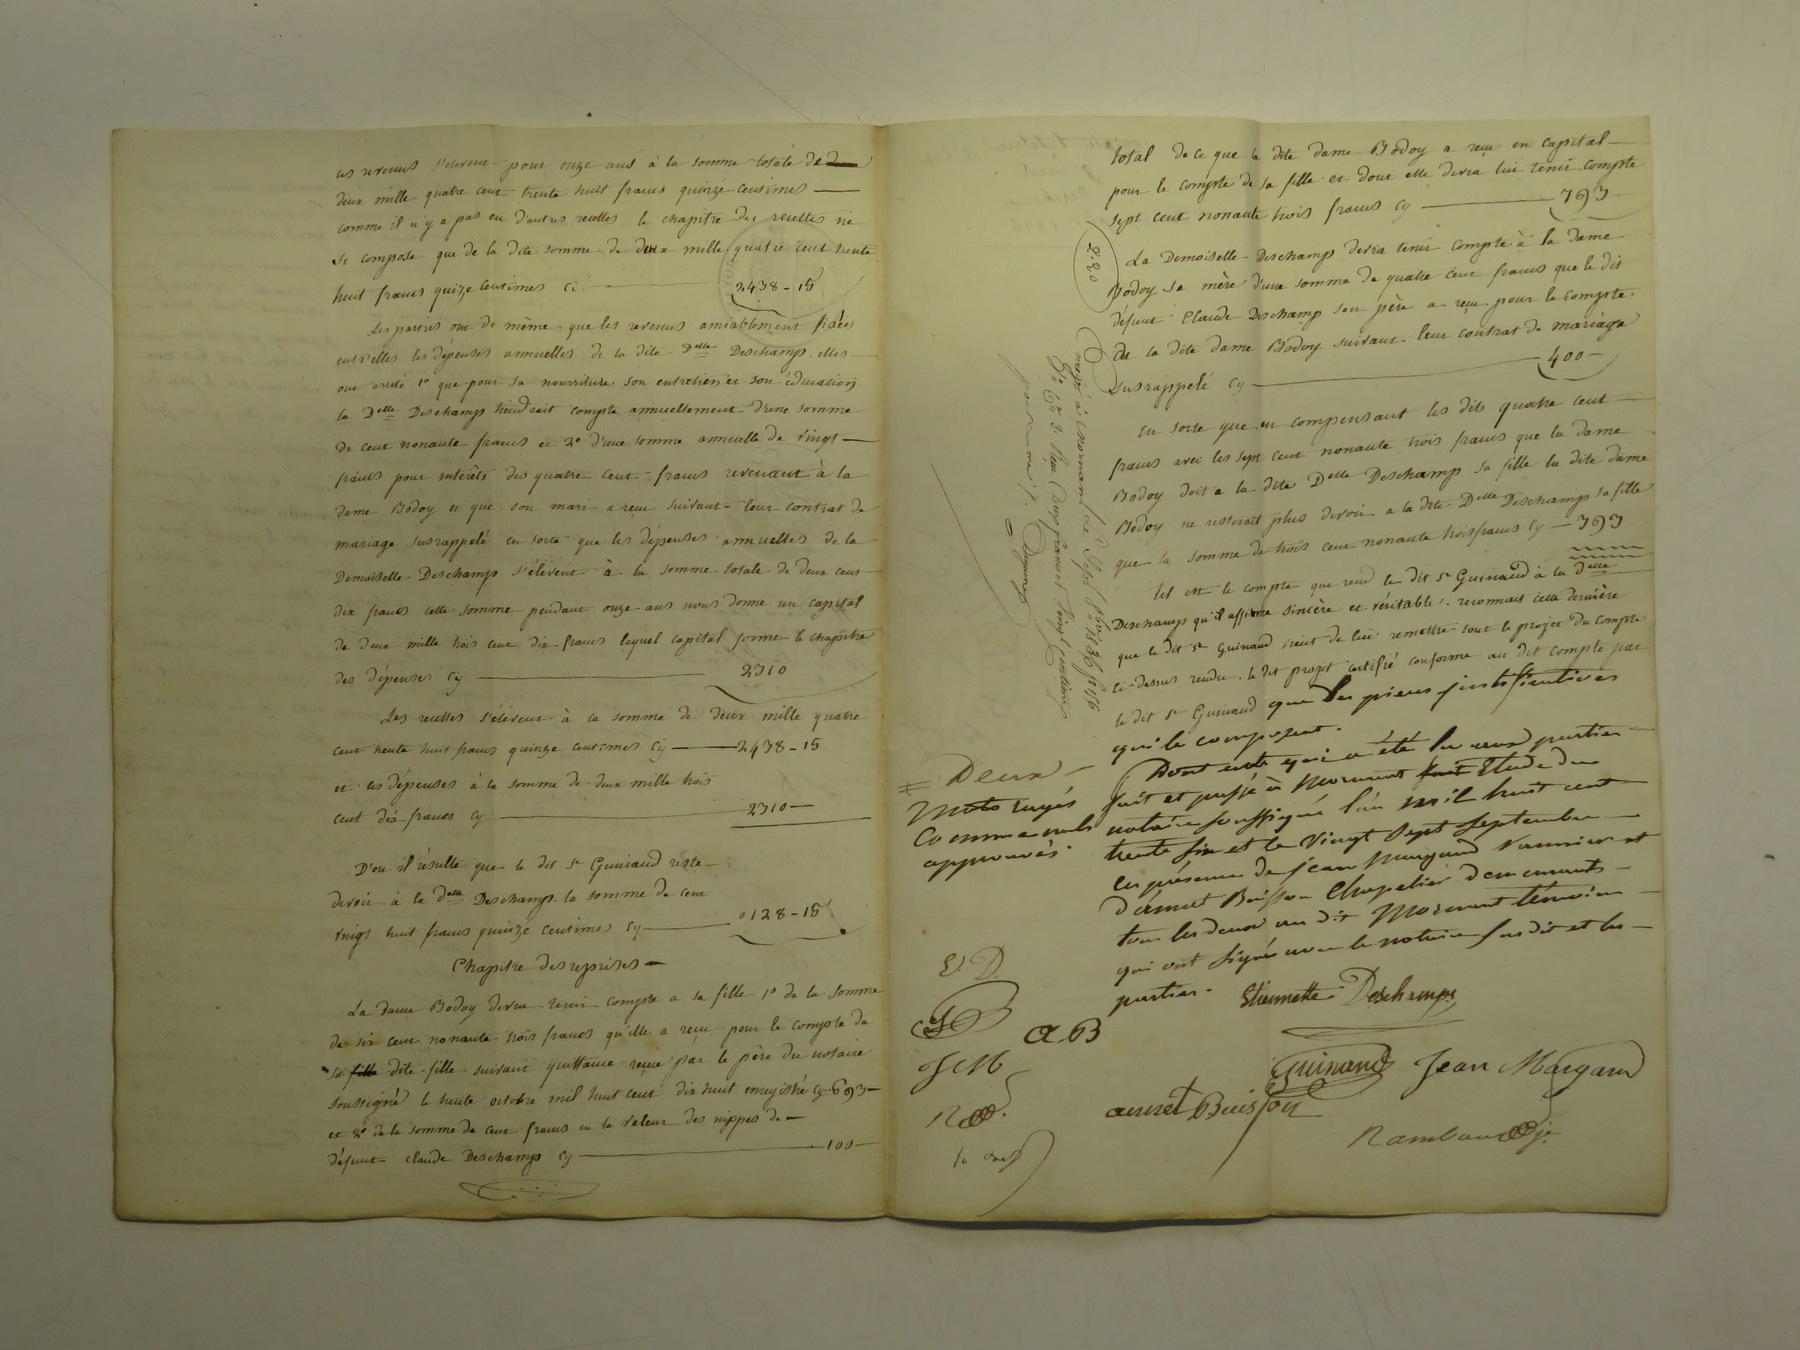 ces revenus s'elevent pour onze ans à la somme totale de
deux mille quatre cent trente huit francs quinze centimes
comme il n'y a pas eu d'autres recettes le chapitre des recettes ne
se compose que de la dite somme de deux mille quatre cent trente
huit francs quize centimes ci 2438-15
Les parties ont de même que les revenus amiablement fixées
entr'elles les dépenses annuelles de la dite Delle Deschamp. elles
ont arreté 1o que pour sa nourriture son entretien et son éducation
la Delle Deschamp tiendrait compte annuellement d'une somme
de cent nonante francs et 2o d'une somme annuelle de vingt
francs pour intérêts des quatre cent francs revenant à la
dame Bodoy et que son mari a reçu suivant leur contrat de
mariage susrappelé en sorte que les dépenses annuelles de la
Demoiselle Deschamp s'élèvent à la somme totale de deux cent
dix francs cette somme pendant onze ans nous donne un capital
de deux mille trois cent dix francs lequel capital forme le chapitre
des dépenses cy 2310
Les recettes s'élèvent à la somme de deux mille quatre
cent trente huit francs quinze centimes cy 2438-15
et les dépenses à la somme de deux mille trois
cent dix francs cy 2310
D'ou il résulte que le dit sr Guinaud reste
devoir à la delle Deschamp la somme de cent
vingt huit francs quinze centimes cy 0128-15
Chapitre des reprises
La dame Bodoy devra tenir compte a sa fille 1o de la somme
de six cent nonante trois francs qu'elle a reçu pour le compte de
sa fille dite fille suivant quittance reçue par le père du notaire
soussigné le trente octobre mil huit cent dix huit enregistré cy 693
et 2o de la somme de cent francs en la valeur des nippes de
défunt claude Deschamp cy 100
total de ce que la dite dame Bodoy a reçu en capital
pour le compte de sa fille et dont elle devra lui tenir compte
sept cent nonante trois francs cy 793
La Demoiselle Deschamp devra tenir compte à la dame
Bodoy sa mère d'une somme de quatre cent francs que le dit
defunt Claude Deschamp son père a reçu pour le compte
de la dite dame Bodoy suivant leur contrat de mariage
susrappelé cy 400
En sorte que en compensant les dits quatre cent
francs avec les sept cent nonante trois francs que la dame
Bodoy doit a la dite Delle Deschamp sa fille la dite dame
Bodoy ne resterait plus devoir a la dite Delle Deschamp sa fille
que la somme de trois cent nonante trois francs cy 393
Tel est le compte que rend le dit sr Guinaud à la Delle
Deschamp qu'il affirme sincère et véritable. reconnait cette dernière
que le dit sr Guinaud vient de lui remettre tout le projet du compte
ci-dessus rendu. le dit projet certifié conforme au dit compte par
le dit sr Guinaud que les pieces justificatives
qui le composent.
Dont acte qui a été lu aux parties
fait et passé à Mornant Etude du
notaire soussigné l'an mil huit cent
trente six et le vingt sept septembre
en présence de Jean Margand vannier et
d'annet Buisson Chapelier demeurants
tous les deux au dit Mornant témoins
qui ont signés avec le notaire susdit et les
parties.
2.20
Enregé à Mornant Le Sept 8bre 1836 fo 156
Ro Co 3. Reçu Deux francs Vingt centimes
Deux
mots rayés
comme nuls
approuvés.
E. D.
G
a B
J M
R
Etiennette Deschamps
Guinaud
Jean Margand
annet Buisson
Rambaud je